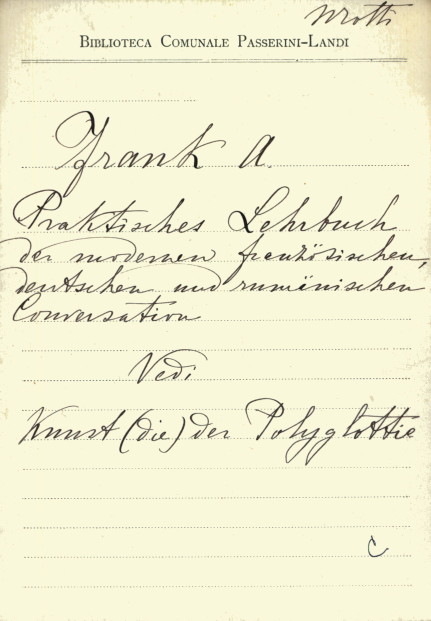 BIBLIOTECA COMUNALE PASSERINI-LANDI
Frank A.
Praktisches Lehrbuch
der modernen französischen,
deutschen und rumänischen
Conversation
Vedi
Kunst (die) der Polyglottie
C